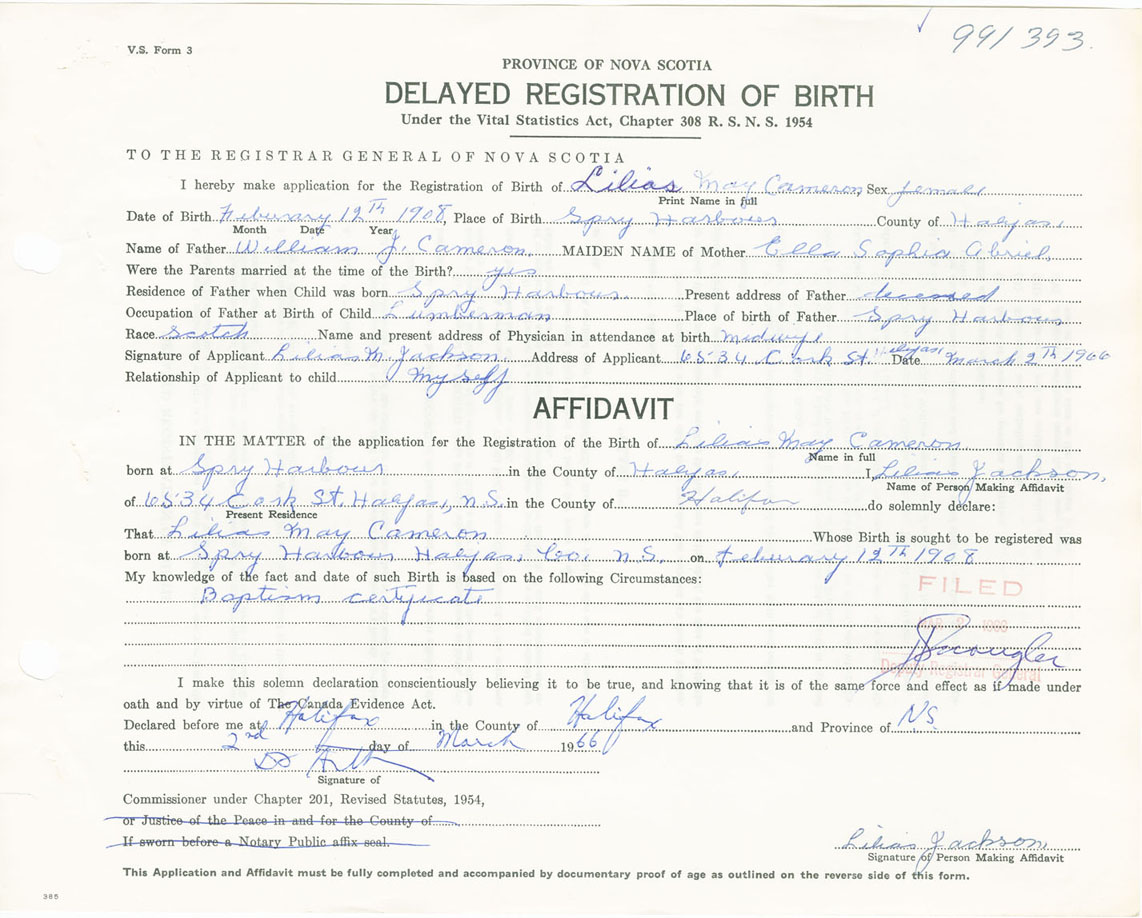 991 393.
V.S. Form 3
PROVINCE OF NOVA SCOTIA
DELAYED REGISTRATION OF BIRTH
Under the Vital Statistics Act, Chapter 308 R. S. N. S. 1954
TO THE REGISTRAR GENERAL OF NOVA SCOTIA
I hereby make application for the Registration of Birth of Lilias May Cameron, Sex female,
Print Name in full
Date of Birth Feburary 12TH 1908, Place of Birth Spry Harbour County of Halifax,
Month Date Year
Name of Father William J. Cameron, MAIDEN NAME of Mother Ella Sophia Abriel,
Were the Parents married at the time of the Birth? yes
Residence of Father when Child was born Spry Harbour. Present address of Father deceased
Occupation of Father at Birth of Child Lumberman Place of birth of Father Spry Harbour
Race Scotch Name and present address of Physician in attendance at birth midwife
Signature of Applicant Lilias M. Jackson. Address of Applicant 6534 Cork St Halifax, Date March 2TH 1966
Relationship of Applicant to child myself
AFFIDAVIT
IN THE MATTER of the application for the Registration of the Birth of Lilias May Cameron
Name in full
born at Spry Harbour in the County of Halifax, I, Lilias Jackson,
Name of Person Making Affidavit
of 6534 Cork St, Halifax, N.S. in the County of Halifax do solemnly declare:
Present Residence
That Lilias May Cameron Whose Birth is sought to be registered was
born at Spry Harbour Halifax, Co, N.S. on Feburary 12TH 1908
My knowledge of the fact and date of such Birth is based on the following Circumstances:
FILED
Baptism certificate
Deputy Registrar General
I make this solemn declaration conscientiously believing it to be true, and knowing that it is of the same force and effect as if made under
oath and by virtue of The Canada Evidence Act.
Declared before me at Halifax in the County of Halifax and Province of NS
this 2nd day of March 1966
Signature of
Commissioner under Chapter 201, Revised Statutes, 1954,
or Justice of the Peace in and for the County of
If sworn before a Notary Public affix seal.
Lilias Jackson,
Signature of Person Making Affidavit
This Application and Affidavit must be fully completed and accompanied by documentary proof of age as outlined on the reverse side of this form.
385